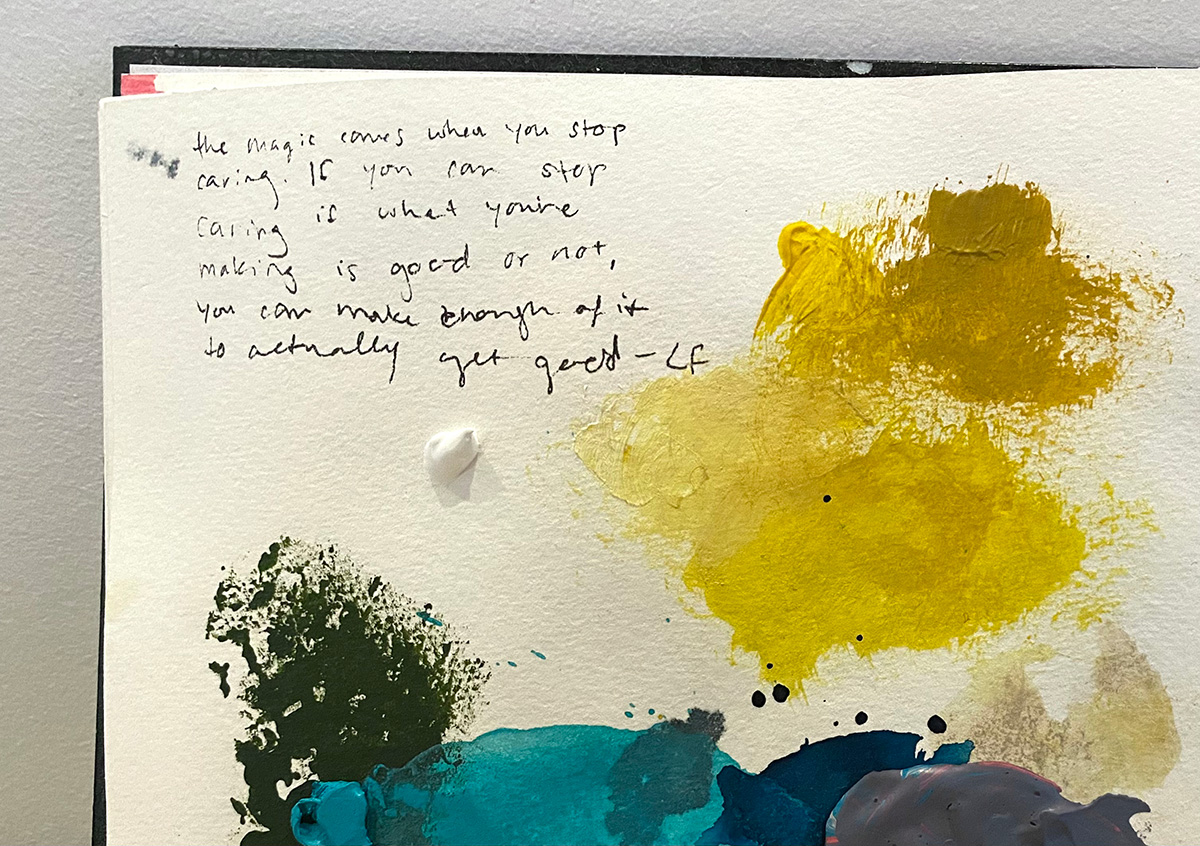 the magic comes when you stop
caring. If you can stop
caring if what you're
making is good or not,
you can make enough of it
to actually get good - LF